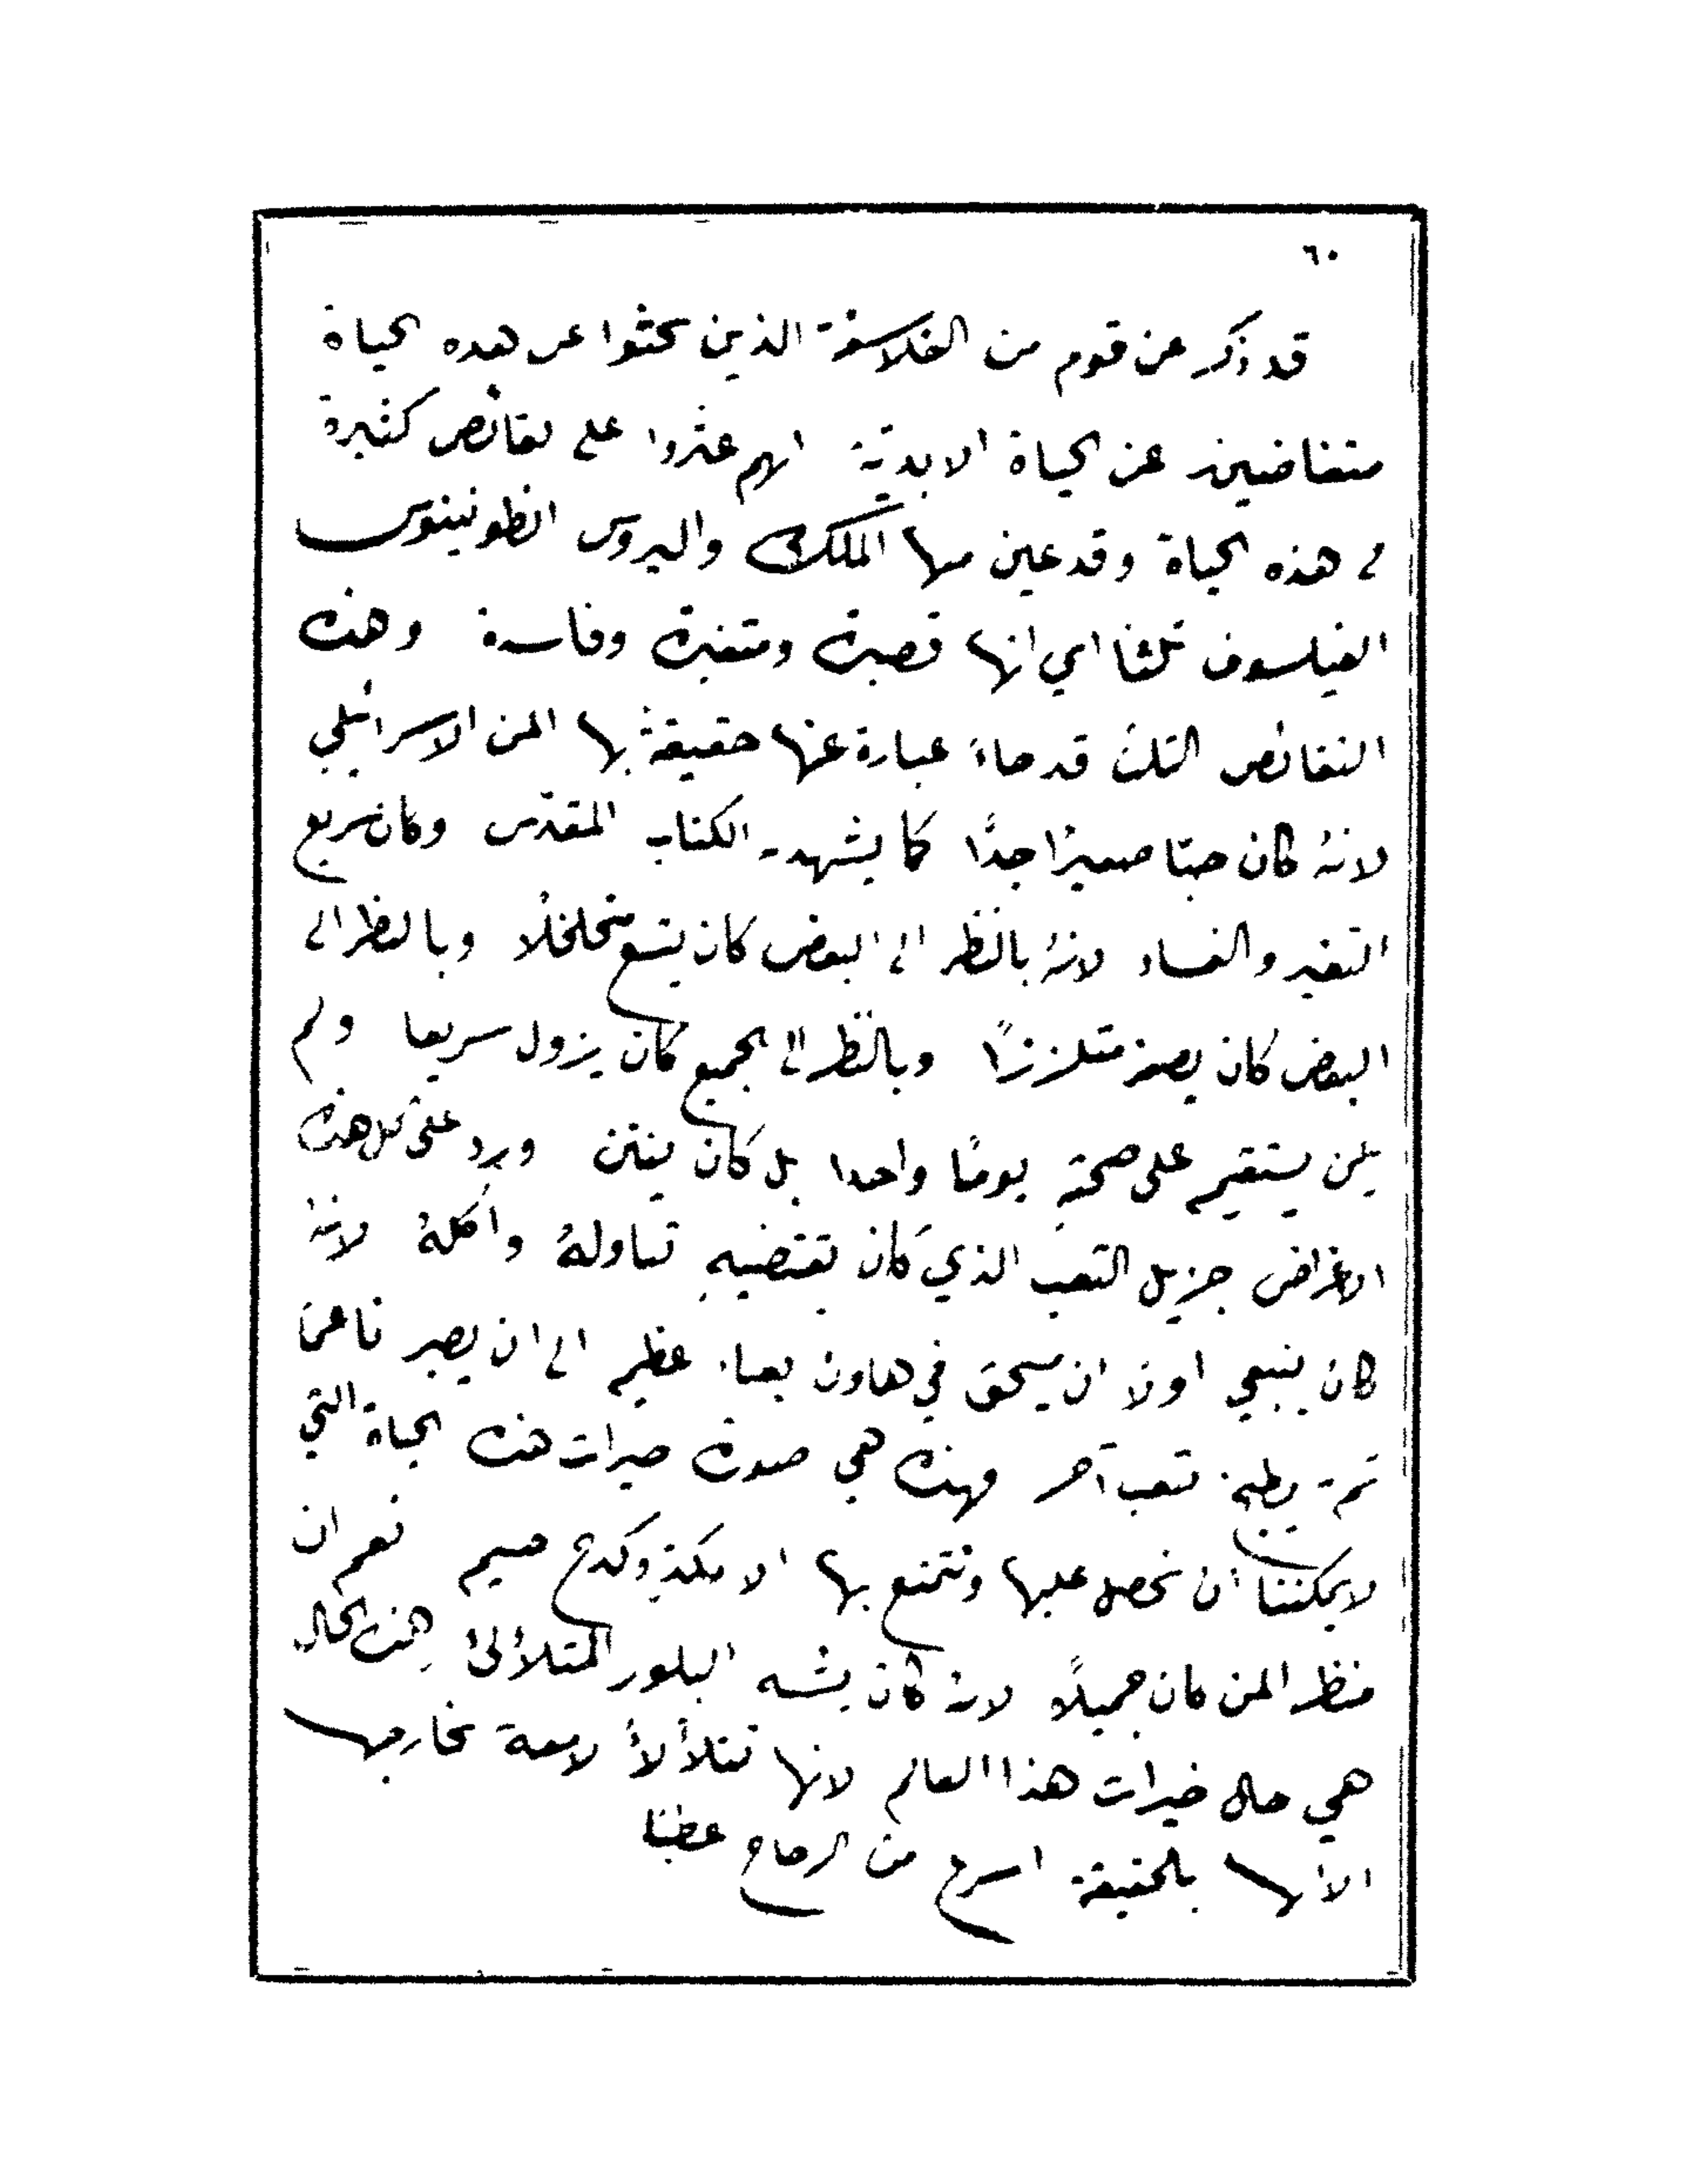 ٦٠
قد ذكر عن قوم من الفلاسفة الذين بحثوا عن هذه الحياة
متغاضين عن الحياة الابدية انهم عثروا على نقائص كثيرة
في هذه الحياة وقد عين منها الملك واليروس انطونينوس
الفيلسوف ثلثا اي انها قصيرة ومتغيرة وفاسدة وهذه
النقائص الثلث قد جاءَ عبارة عنها حقيقةً بها المن الاسرائيلي
لانهُ كان حبّا صغيرًا جدًّا كما يشهد به الكتاب المقدّس وكان سريع
التغير والفساد لانهُ بالنظر الى البعض كان يتسع متخلخلًا وبالنظر الى
البعض كان يصغر متلززًا وبالنظر الى الجميع كان يزول سريعا ولم
يكن يستقيم على صحتهِ يومًا واحدا بل كان ينتن ويرد على كل هذه
الاغراض جزيل التعب الذي كان يقتضيهِ تناولهُ واكلهُ لانهُ
كان ينبغي اولا ان يسحق في هاون بعناء عظيم الى ان يصير ناعمًا
ثم يطبخ بتعب آخر فهذه هي صورة خيرات هذه الحياة التي
لا يمكننا ان نحصل عليها ونتمتع بها الا بكدٍ وكدح جسيم نعم ان
منظر المن كان جميلًا لانه كان يشبه البلور المتلألئ وهذه الحال
هي حال خيرات هذا العالم لانها تتلألأ لامعة بخارجها
الا انها بالحقيقة اسرع من الزجاج عطبًا